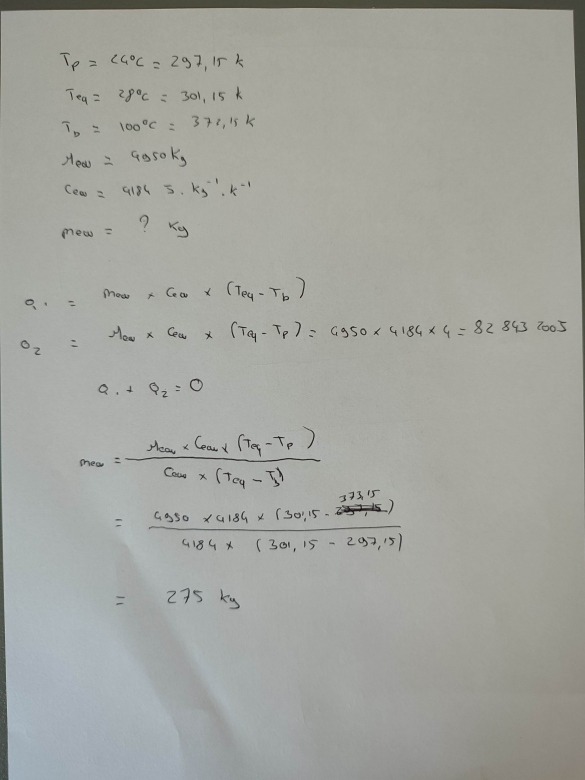 Tp = 24°C = 297,15 k
Teq = 28°C = 301,15 k
Tb = 100°C = 373,15 k
Meau = 4950 kg
Ceau = 4184 J. kg⁻¹. k⁻¹
meau = ? kg
Q₁ = meau × Ceau × (Teq - Tb)
Q₂ = Meau × Ceau × (Teq - Tp) = 4950 × 4184 × 4 = 82 843 200J
Q₁ + Q₂ = 0
meau = Meau × Ceau × (Teq - Tp) / Ceau × (Teq - Tb)
= 4950 × 4184 × (301,15 - 373,15) / 4184 × (301,15 - 297,15)
= 275 kg